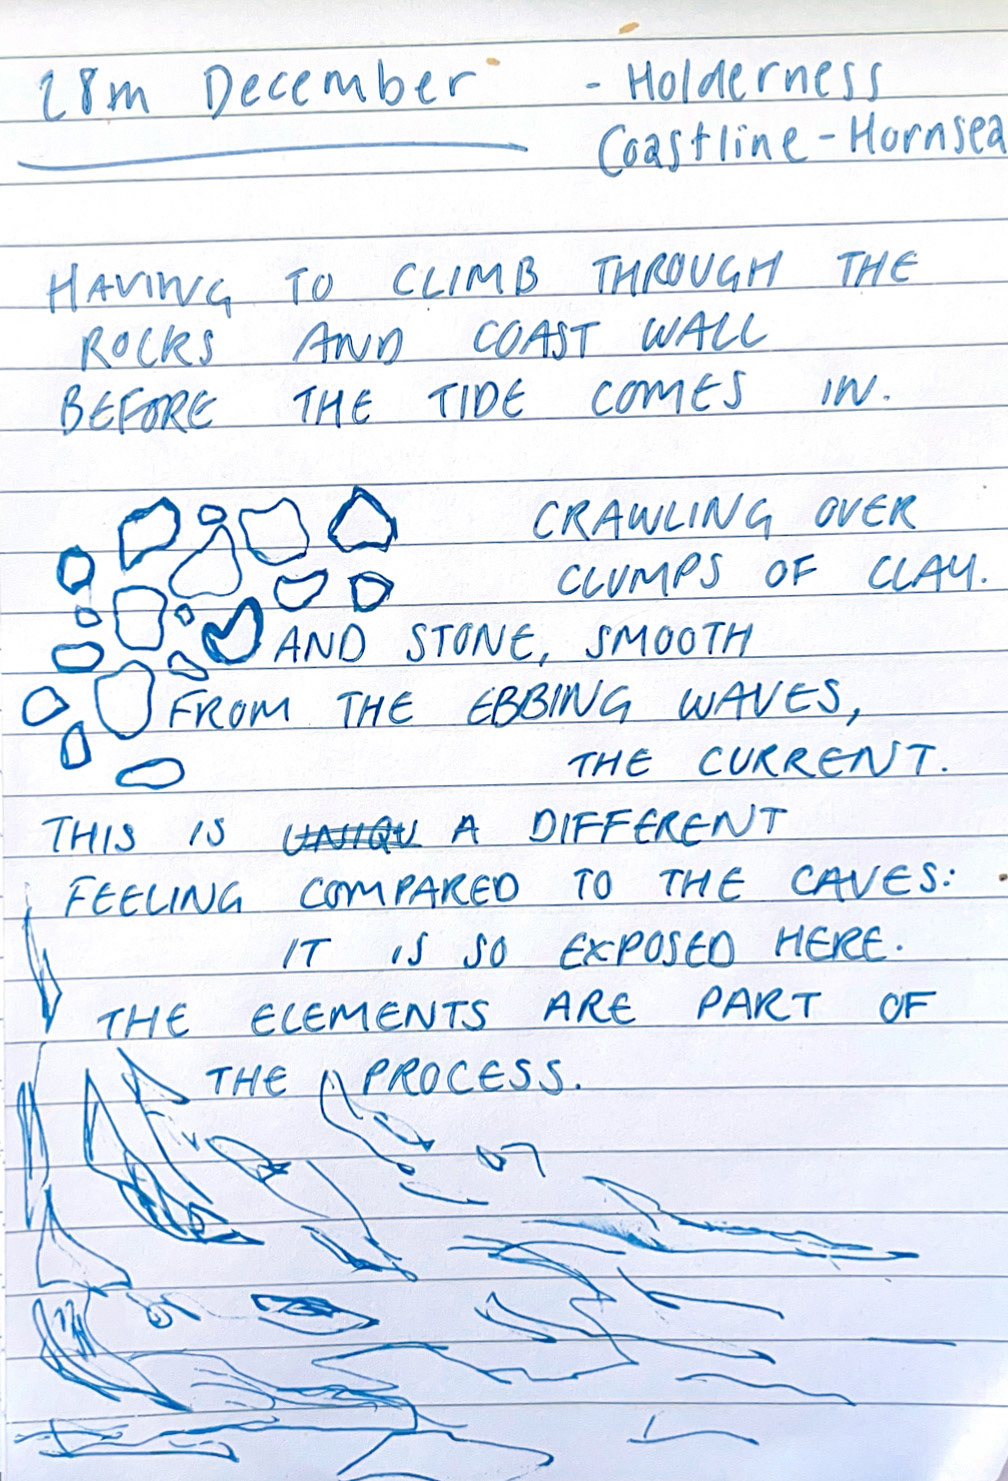 28th December - Holderness
Coastline - Hornsea
HAVING TO CLIMB THROUGH THE
ROCKS AND COAST WALL
BEFORE THE TIDE COMES IN.
CRAWLING OVER
CLUMPS OF CLAY.
AND STONE, SMOOTH
FROM THE EBBING WAVES,
THE CURRENT.
THIS IS UNIQU A DIFFERENT
FEELING COMPARED TO THE CAVES:
IT IS SO EXPOSED HERE.
THE ELEMENTS ARE PART OF
THE PROCESS.